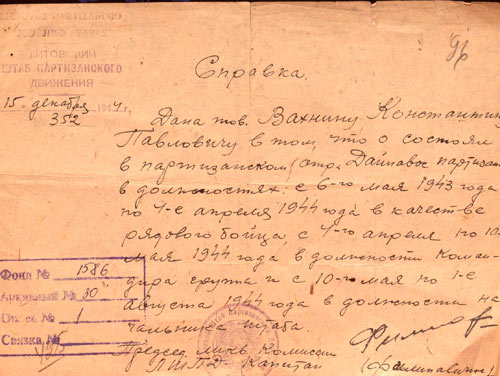 ЛИТОВСКИЙ
ШТАБ ПАРТИЗАНСКОГО
ДВИЖЕНИЯ
15 декабря 4
352
Справка.
Дана тов. Вахнину Константин
Павловичу в том, что о состоял
в партизанском отр. партизан
в должностях: с 6-го мая 1943 года
по 4-е апреля 1944 года в качестве
рядового бойца, с 4-го апреля по 10-
мая 1944 года в должности Коман-
дира группы и с 10-го мая по 1-е
августа 1944 года в должности на-
чальника штаба.
Председ. ликв. Комиссии
ЛШПД Капитан
(Филипович)
Фонд № 1586
Архивный № 30
Опись № 1
Связка №